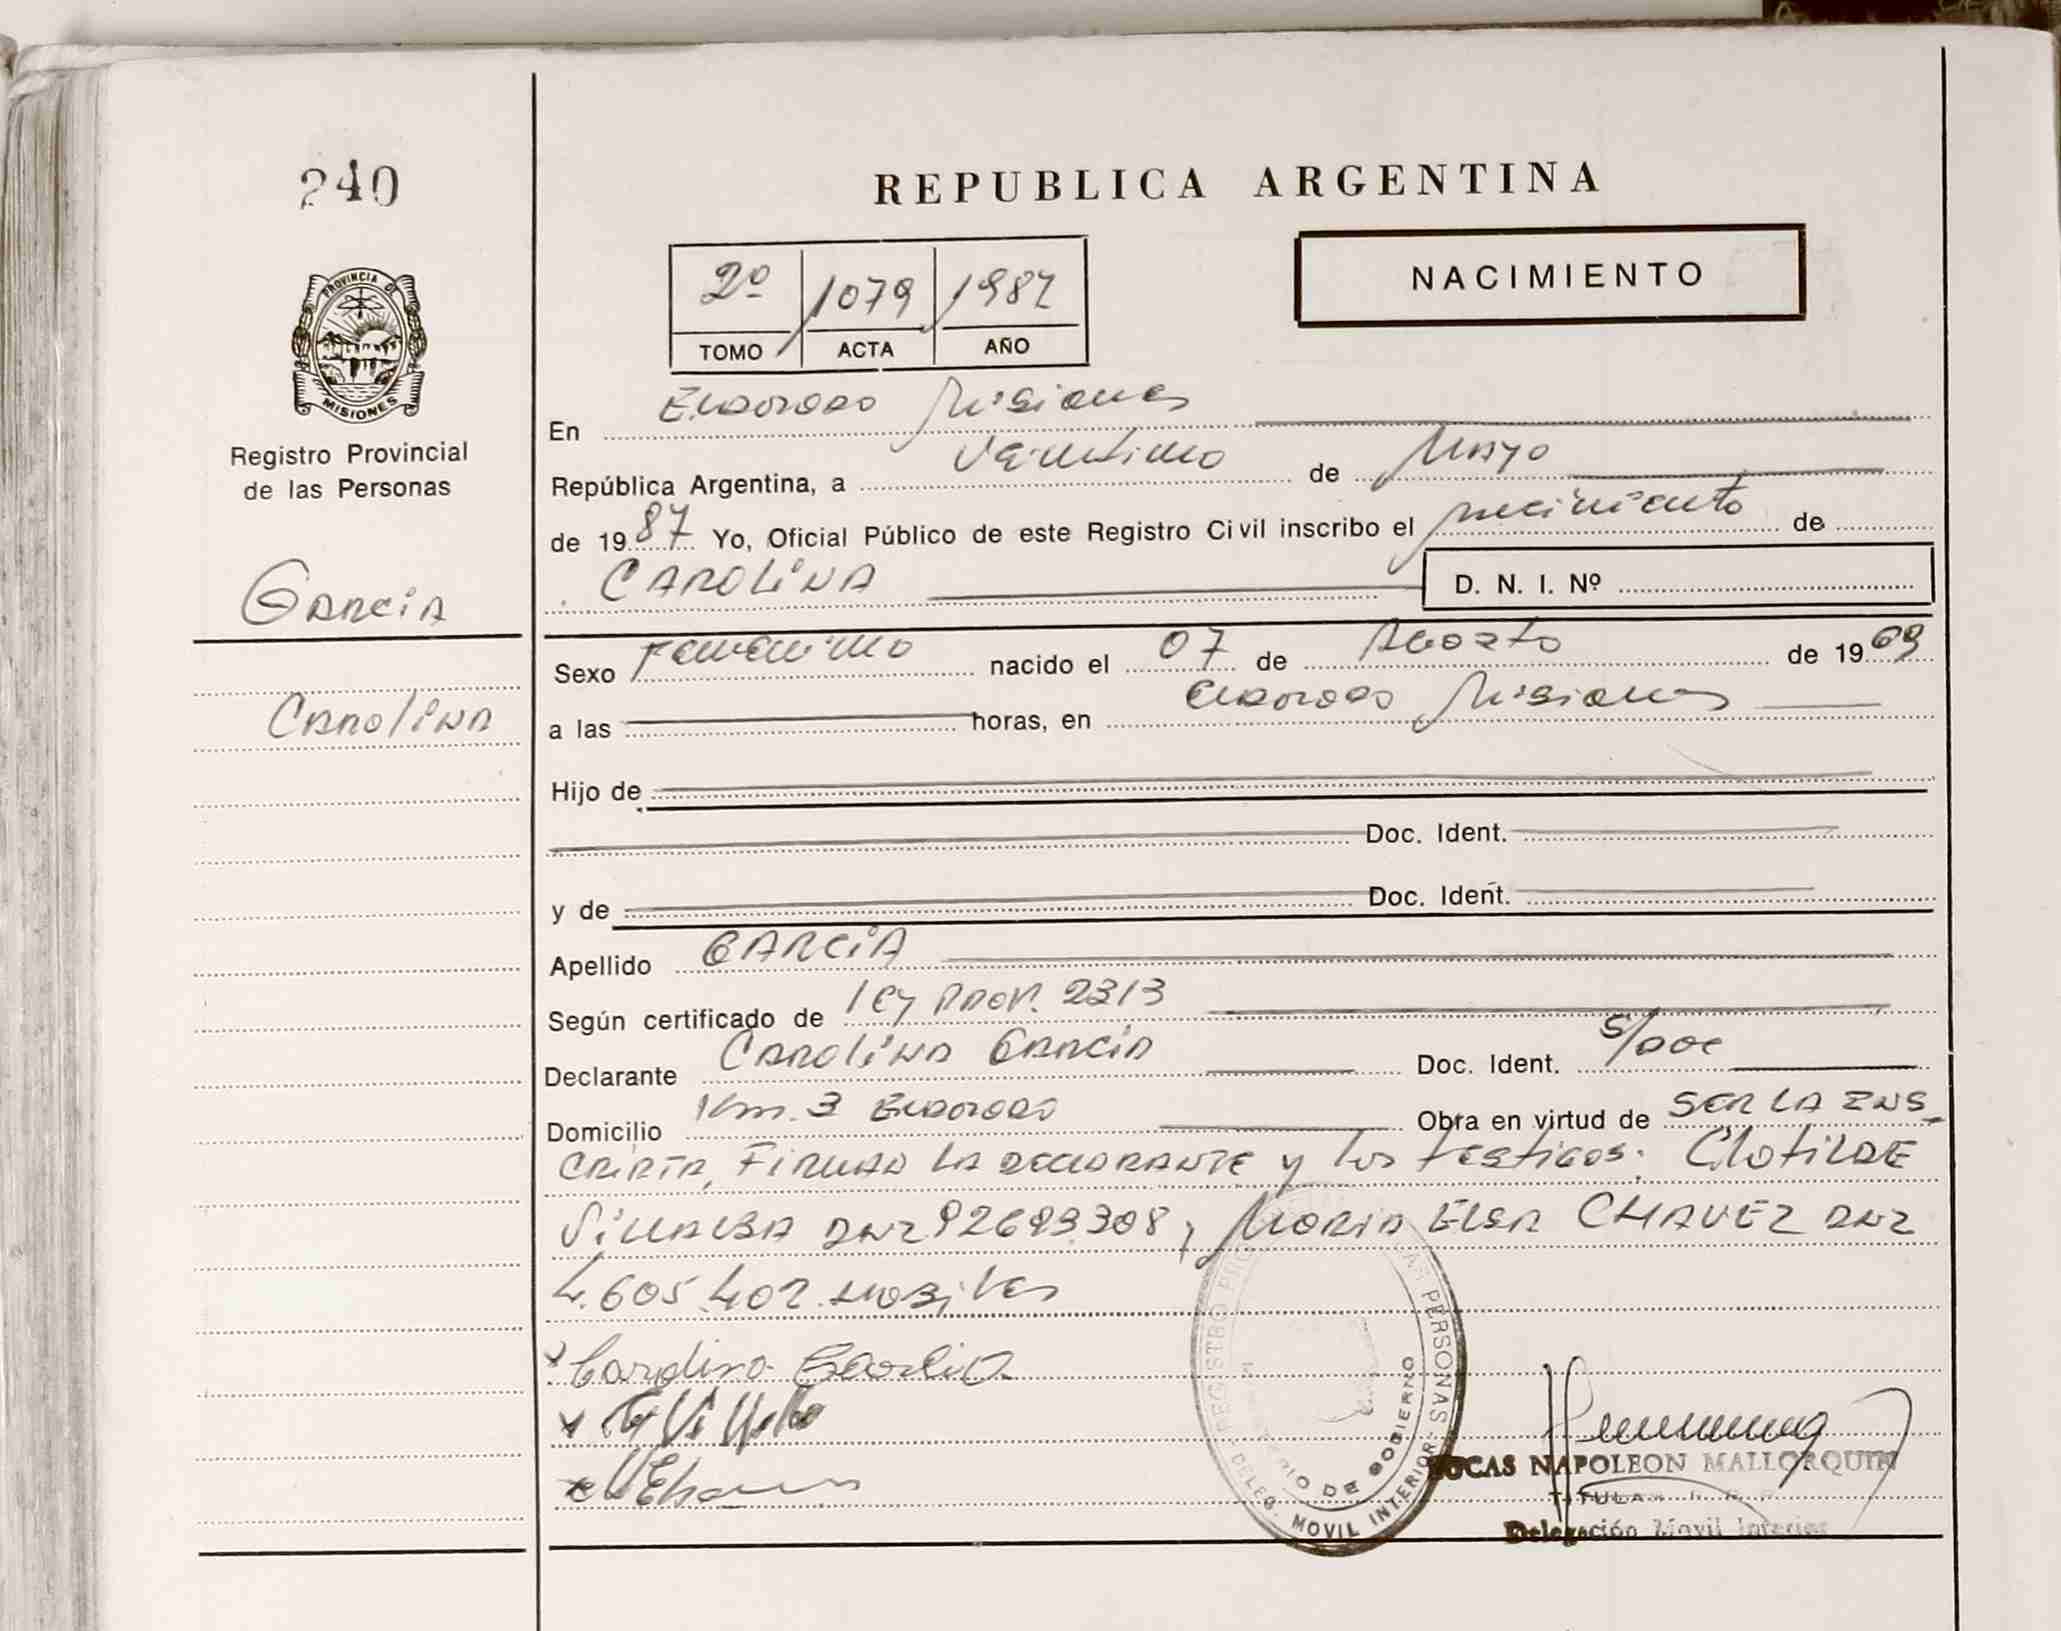 240
REPUBLICA ARGENTINA
NACIMIENTO
2º 1079 1987
TOMO ACTA AÑO
PROVINCIA DE MISIONES
Registro Provincial
de las Personas
Garcia
Carolina
En Eldorado Misiones
República Argentina, a de Mayo
de 1987 Yo, Oficial Público de este Registro Civil inscribo el nacimiento de
CAROLINA D. N. I. Nº
Sexo Femenino nacido el 07 de Agosto de 1969
a las horas, en Eldorado Misiones
Hijo de
Doc. Ident.
y de Doc. Ident.
Apellido GARCIA
Según certificado de Ley Prov. 2313
Declarante Carolina Garcia Doc. Ident. S/Doc
Domicilio Km. 3 Eldorado Obra en virtud de SER LA INS
CRIPTA, Firman LA DECLARANTE y los testigos: Clotilde
Villalba DNI 92693.308, Maria Elsa CHAVEZ DNI
4.605.402
Carolina Garcia
REGISTRO PERSONAS
MINISTERIO DE GOBIERNO
DELEG. MOVIL INTERIOR
LUCAS NAPOLEON MALLORQUIN
TITULAR
Delegación Movil Interior